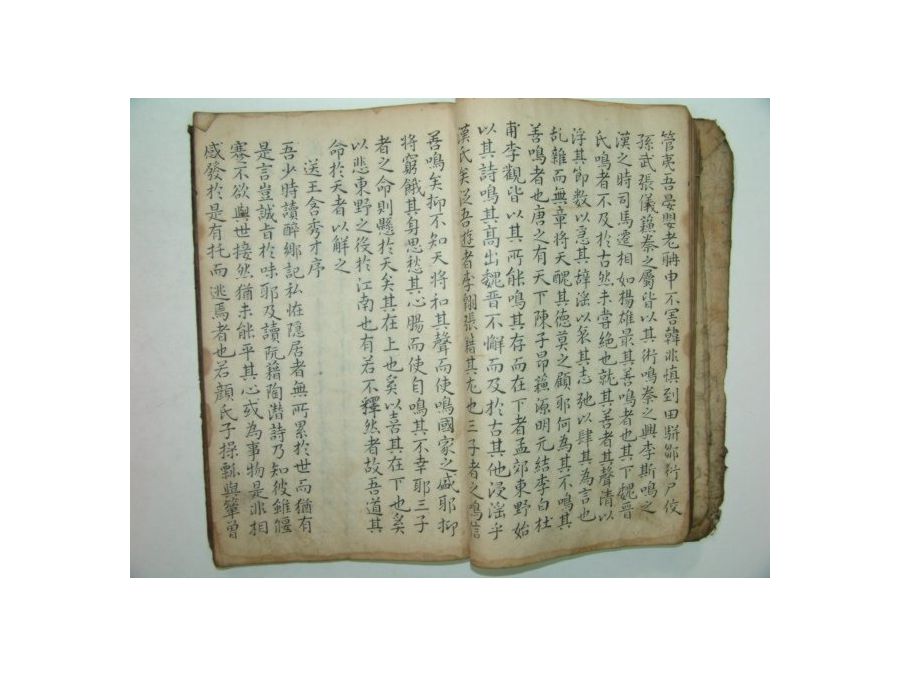 管夷吾晏嬰老聃申不害韓非慎到田騈鄒衍尸佼
孫武張儀蘇秦之屬皆以其術鳴秦之興李斯鳴之
漢之時司馬遷相如楊雄最其善鳴者也其下魏晉
氏鳴者不及於古然未嘗絶也就其善者其聲清以
浮其節數以急其辭淫以哀其志弛以肆其為言也
乱雜而無章將天醜其德莫之顧耶何為其不鳴其
善鳴者也唐之有天下陳子昂蘇源明元結李白杜
甫李觀皆以其所能鳴其存而在下者孟郊東野始
以其詩鳴其髙出魏晉不懈而及於古其他浸淫乎
漢氏矣從吾遊者李翶張籍其尤也三子者之鳴信
善鳴矣抑不知天將和其聲而使鳴國家之盛耶抑
將窮餓其身思愁其心腸而使自鳴其不幸耶三子
者之命則懸於天矣其在上也奚以喜其在下也奚
以悲東野之役於江南也有若不釋然者故吾道其
命於天者以解之
送王含秀才序
吾少時讀醉鄉記私怪隱居者無所累於世而猶有
是言豈誠旨於味耶及讀阮籍陶潛詩乃知彼雖偃
蹇不欲與世接然猶未能平其心或為事物是非相
感發於是有托而逃焉者也若顔氏子操瓢與簞曾